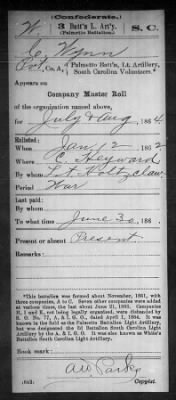 (Confederate.)
W. 3 Batt'n L. Art'y. S. C.
(Palmetto Battalion.)
C. Wynn
Pvt, Co. A, Palmetto Batt'n, Lt. Artillery,
South Carolina Volunteers.*
Appears on
Company Muster Roll
of the organization named above,
for July & Aug, 1864.
Enlisted:
When Jan 12, 1862
Where C. Heyward
By whom Lt. Holtzclaw
Period War
Last paid:
By whom
To what time June 30, 186 .
Present or absent Present
Remarks:
*This battalion was formed about November, 1861, with
three companies, A to C. Seven other companies were added
at various times, the last about June 21, 1862. Companies
H, I and K, not being legally organized, were disbanded by
S. O. No. 77, A. & I. G. O., dated April 1, 1864. It was
known in the field as the Palmetto Battalion Light Artillery,
but was designated the 3d Battalion South Carolina Light
Artillery by the A. & I. G. O. It was also known as White's
Battalion South Carolina Light Artillery.
Book mark:
(642)
Copyist.